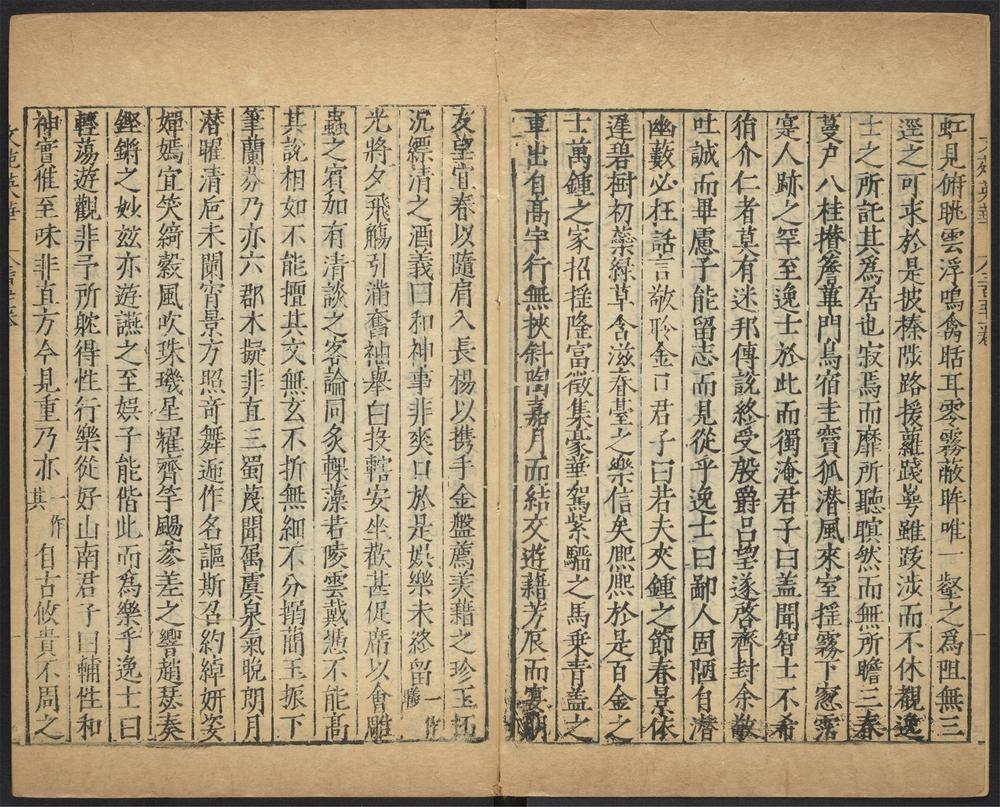 虹見俯眺雲浮鳴禽聒耳零霧蔽眸唯一壑之爲阻無三
逕之可求於是披榛陟路援蘿踐崿雖跋涉而不休觀逸
士之所託其爲居也寂焉而靡所聽瞑然而無所瞻三春
蔓戸八桂攅簷蓽門鳥宿圭竇狐潜風來室揺霧下窓霑
寔人跡之罕至逸士於此而獨淹君子曰盖聞智士不希
狷介仁者莫有迷邦傳說終受殷爵吕望遂啓齊封余敬
吐誠而畢慮子能留志而見從乎逸士曰鄙人固陋自潜
幽藪必枉話言敬聆金口君子曰若夫夾鍾之節春景依
遲碧樹初蘂緑草含滋春臺之樂信矣熈熈於是百金之
士萬鍾之家招揺隆富徵集豪華駕紫騮之馬乗青盖之
車出自髙宇行無挾斜陶嘉月而結交遊藉芳辰而宴朋
友望宜春以隨肩入長楊以携手金盤薦羙藉之珍玉杯
沉縹清之酒義曰和神事非爽口於是娱樂未終留一作
光將夕飛觴引滿奮袖舉白投轄安坐歡甚促席以會雕
蟲之賓加有清談之客論同炙輠藻若陵雲戴憑不能髙
其說相如不能擅其文無玄不折無細不分搦藺玉振下
筆蘭芬乃亦六郡木擬非直三蜀茂聞屬虞泉氣晩朗月
潜曜清巵未闌宵景方照奇舞逓作名謳斯召約綽妍姿
嬋嫣宜笑綺縠風吹珠璣星耀齊竽颺參差之響趙瑟奏
鏗鏘之妙兹亦遊讌之至娱子能偕此而爲樂乎逸士曰
輕蕩遊觀非予所躭得性行樂從好山南君子曰輔性和
神實惟至味非直方今見重乃亦一作其自古攸貴不周之